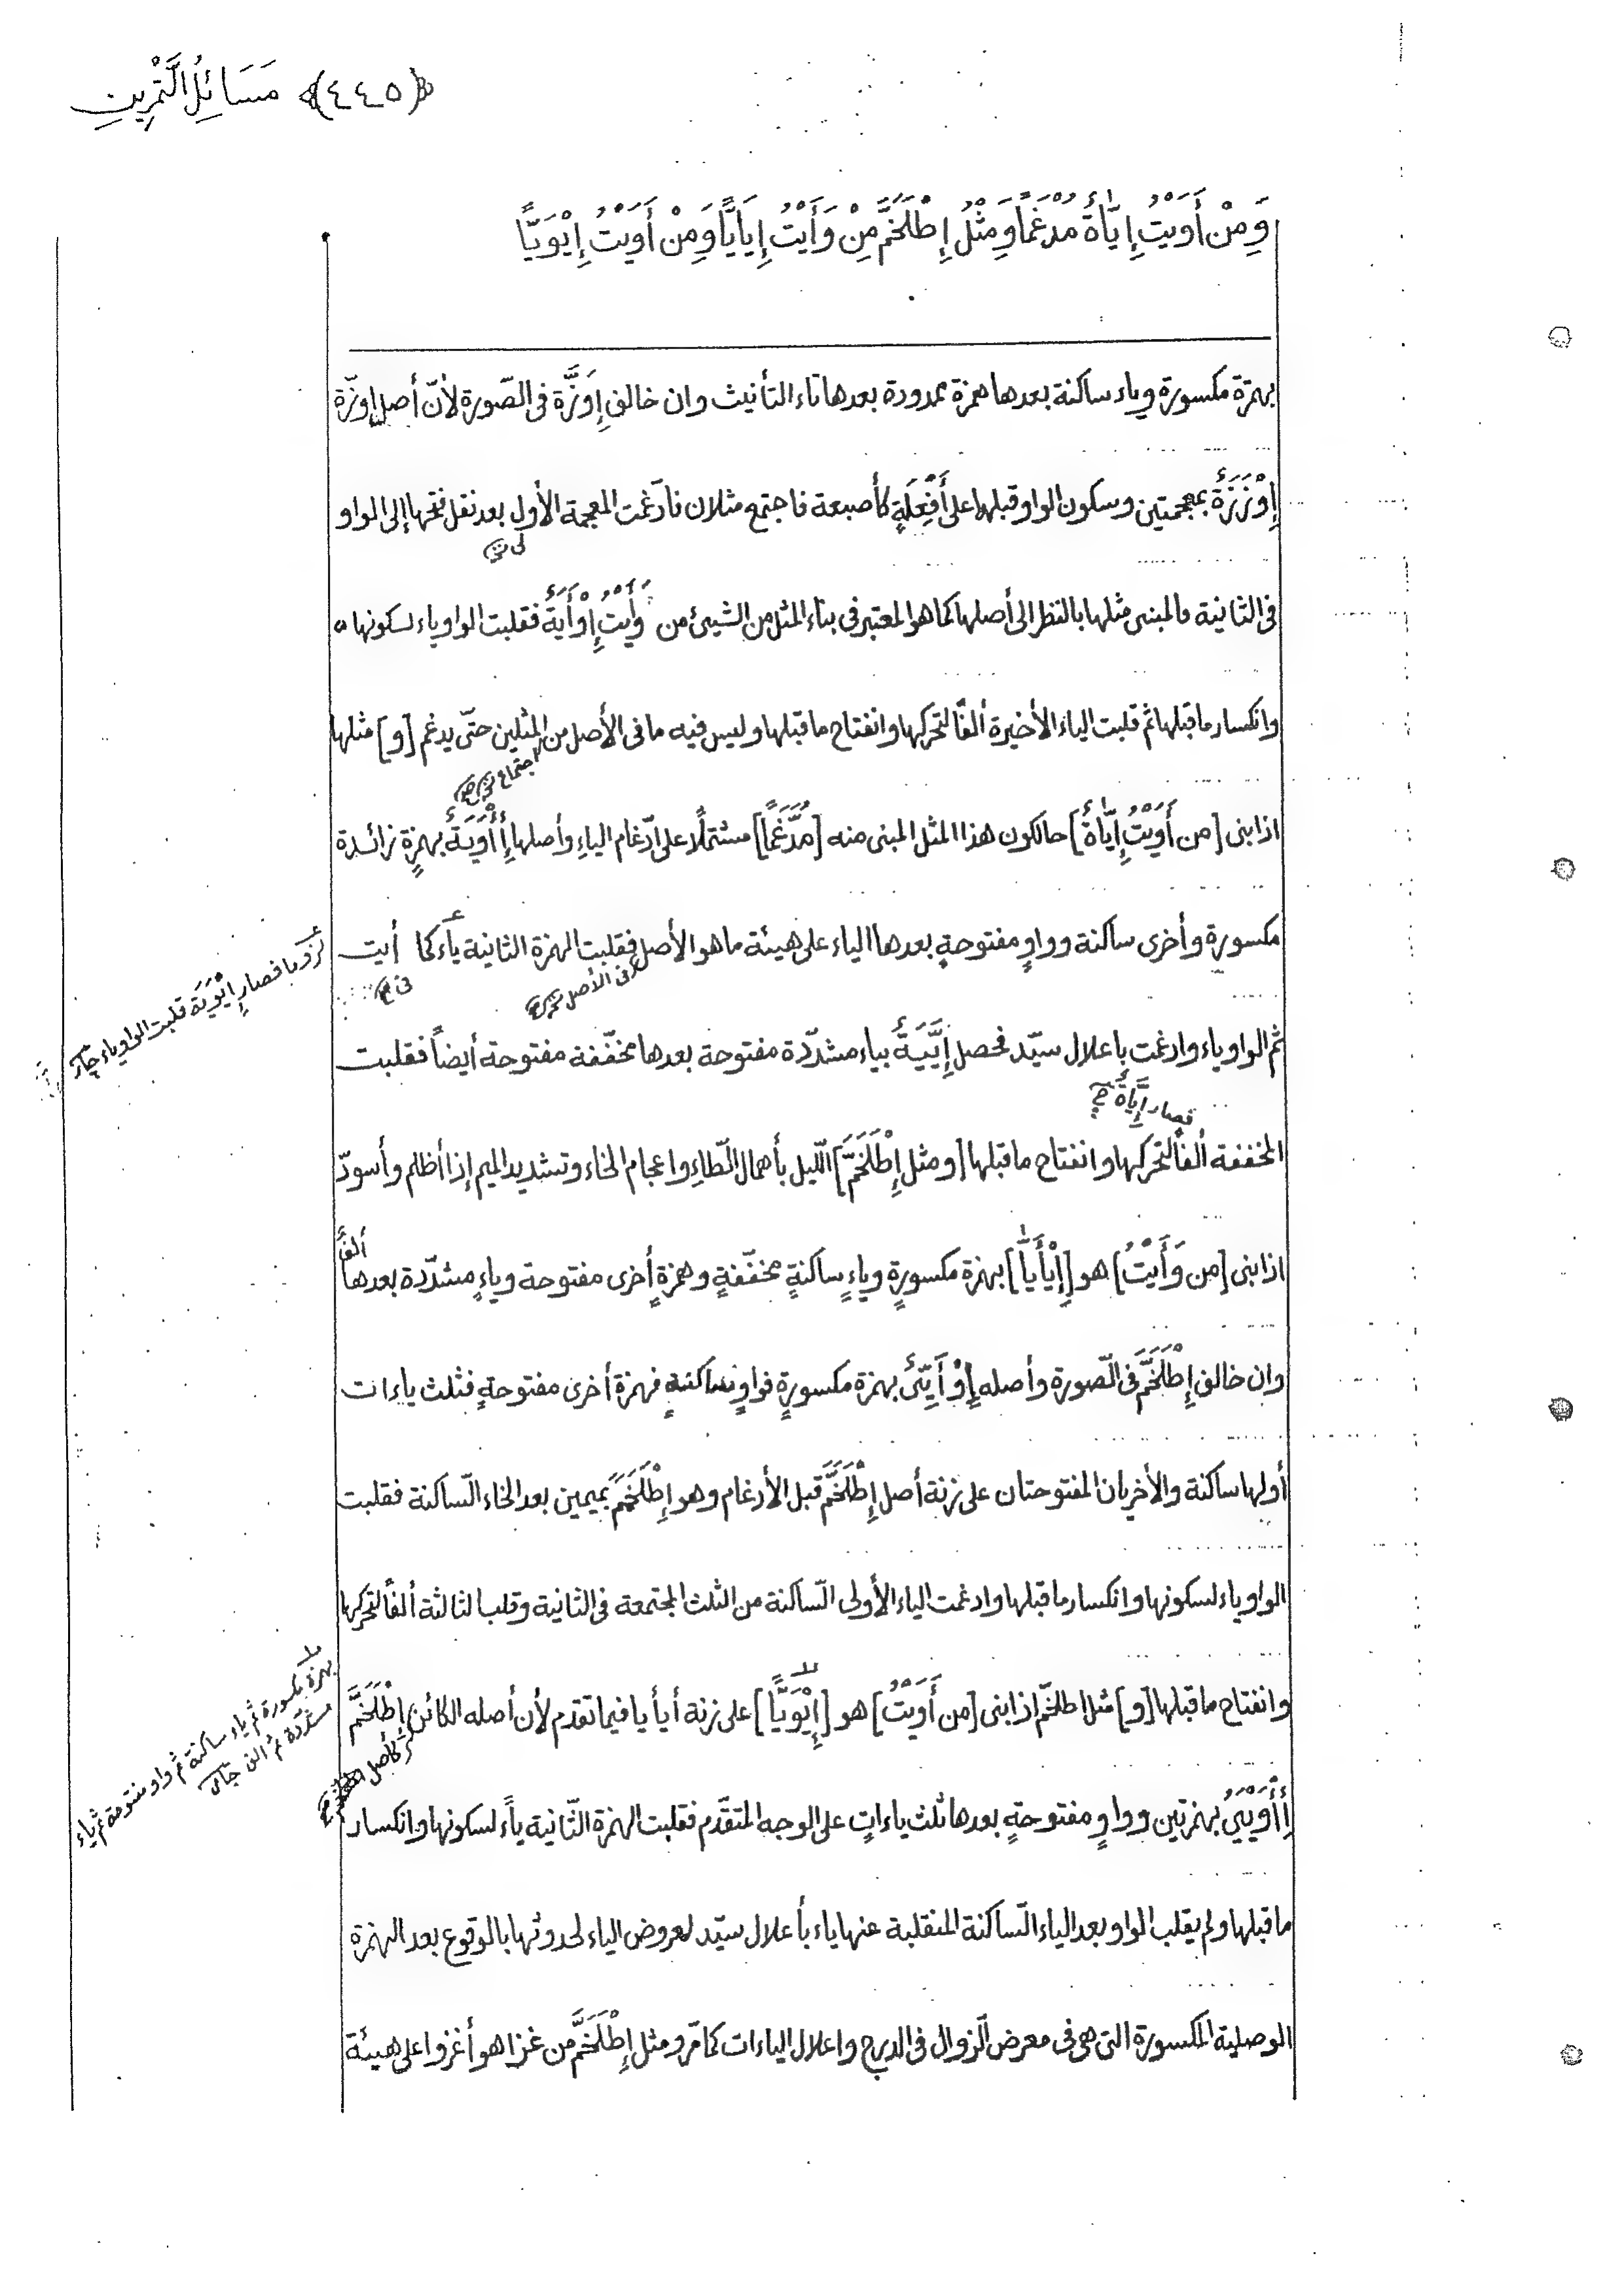 ﴿٤٤٥﴾ مَسَائِلُ الَّتمْرِينِ
وَمِنْ أَوَيْتُ إِيَّاةٌ مُدْغَمًا وَمِثْلُ إِطْلَخَمَّ مِنْ وَأَيْتُ إِيَايَّا وَمِنْ أَوَيْتُ إِيْوَيَّا
بهمزة مكسورة وياء ساكنة بعدها همزة ممدودة بعدها تاء التأنيث وان خالف إِوَزَّة فى الصّورة لأنّ أصل إوزّة
إِوْزَزَةٌ بمعجمتين وسكون الواو قبلها على أَفْعِلَةٍ كأصبعة فاجتمع مثلان فادّغمت المعجمة الأول بعد نقل فتحها إلى الواو
لى
فى الثانية فالمبنى مثلها بالنظر الى أصلها كما هو المعتبر فى بناء المثل من الشيئ من وَأَيْتُ إِوْأَيَةٌ فقلبت الواو ياء لسكونها
وانكسار ما قبلها ثم قلبت الياء الأخيرة ألفًا لتحركها وانفتاح ما قبلها وليس فيه ما فى الأصل من المثلين حتّى يدغم [و] مثلها
اجتماع
اذا بنى [من أَوَيْتُ إِيَّاةٌ] حالكون هذا المثل المبنى منه [مُدَّغَمًا] مشتملًا على ادّغام الياءِ وأصلها إِأْوَيَةٌ بهمزةٍ زائدة
مكسورة وأخرى ساكنة وواوٍ مفتوحةٍ بعدها الياء على هيئة ما هو الأصل فقلبت الهمزة الثانية ياء كما أيت
فى الأصل
لزوما فصار إِيْوَيَة قلبت الواو ياء
ثم الواو ياء وادغمت باعلال سيّد فحصل إِيَّيَةٌ بياء مشدّدة مفتوحة بعدها مخفّفة مفتوحة أيضاً فقلبت
فصار إِيَّاةٌ
المخففة ألفاً لتحركها وانفتاح ما قبلها [ومثل إِطْلَخَمَّ] اللّيل بأهمال الطّاءِ واعجام الخاء وتشديد الميم إذا أظلم وأسودّ
اذا بنى [من وَأَيْتُ] هو [إِيْأَيَّا] بهمزة مكسورةٍ وياءٍ ساكنةٍ مخفّفةٍ وهمزةٍ أخرى مفتوحة وياءٍ مشدّدة بعدها ألفاً
وان خالف إِطْلَخَمَّ فى الصّورة وأصله إِوْأَيّىَ بهمزة مكسورةٍ فواوٍ ساكنةٍ فهمزة أخرى مفتوحةٍ فثلث ياءات
أولها ساكنة والأخريان المفتوحتان على زنة أصل إِطْلَخَمَّ قبل الأدغام وهو إِطْلَخْمَمَ بميمين بعد الخاء السّاكنة فقلبت
الواو ياء لسكونها وانكسار ما قبلها وادغمت الياء الأولى السّاكنة من الثلث المجتمعة فى الثانية وقلب الثالثة ألفًا لتحركها
وانفتاح ما قبلها [و] مثل اطلخمّ اذا بنى [من أَوَيْتُ] هو [إِيْوَيَّا] على زنة أيأيا فيما تقدم لأن أصله الكائن إِطْلَخَمَّ
كأصل
بهمزة مكسورة ثم ياء ساكنة ثم واو مفتوحة ثم ياء
مشدّدة ثم الف
إِأْوَيْيَيُ بهمزتين وواوٍ مفتوحةٍ بعدها ثلث ياءاتٍ على الوجه المتقدّم فقلبت الهمزة الثّانية ياءً لسكونها وانكسار
ما قبلها ولم يقلب الواو بعد الياء السّاكنة المنقلبة عنها ياء بأعلال سيّد لعروض الياء لحدوثها بالوقوع بعد الهمزة
الوصلية المكسورة التى هى فى معرض الزوال فى الدرج واعلال الياءات كما مّر ومثل إِطْلَخَمَّ من غزا هو أغزوا على هيئة